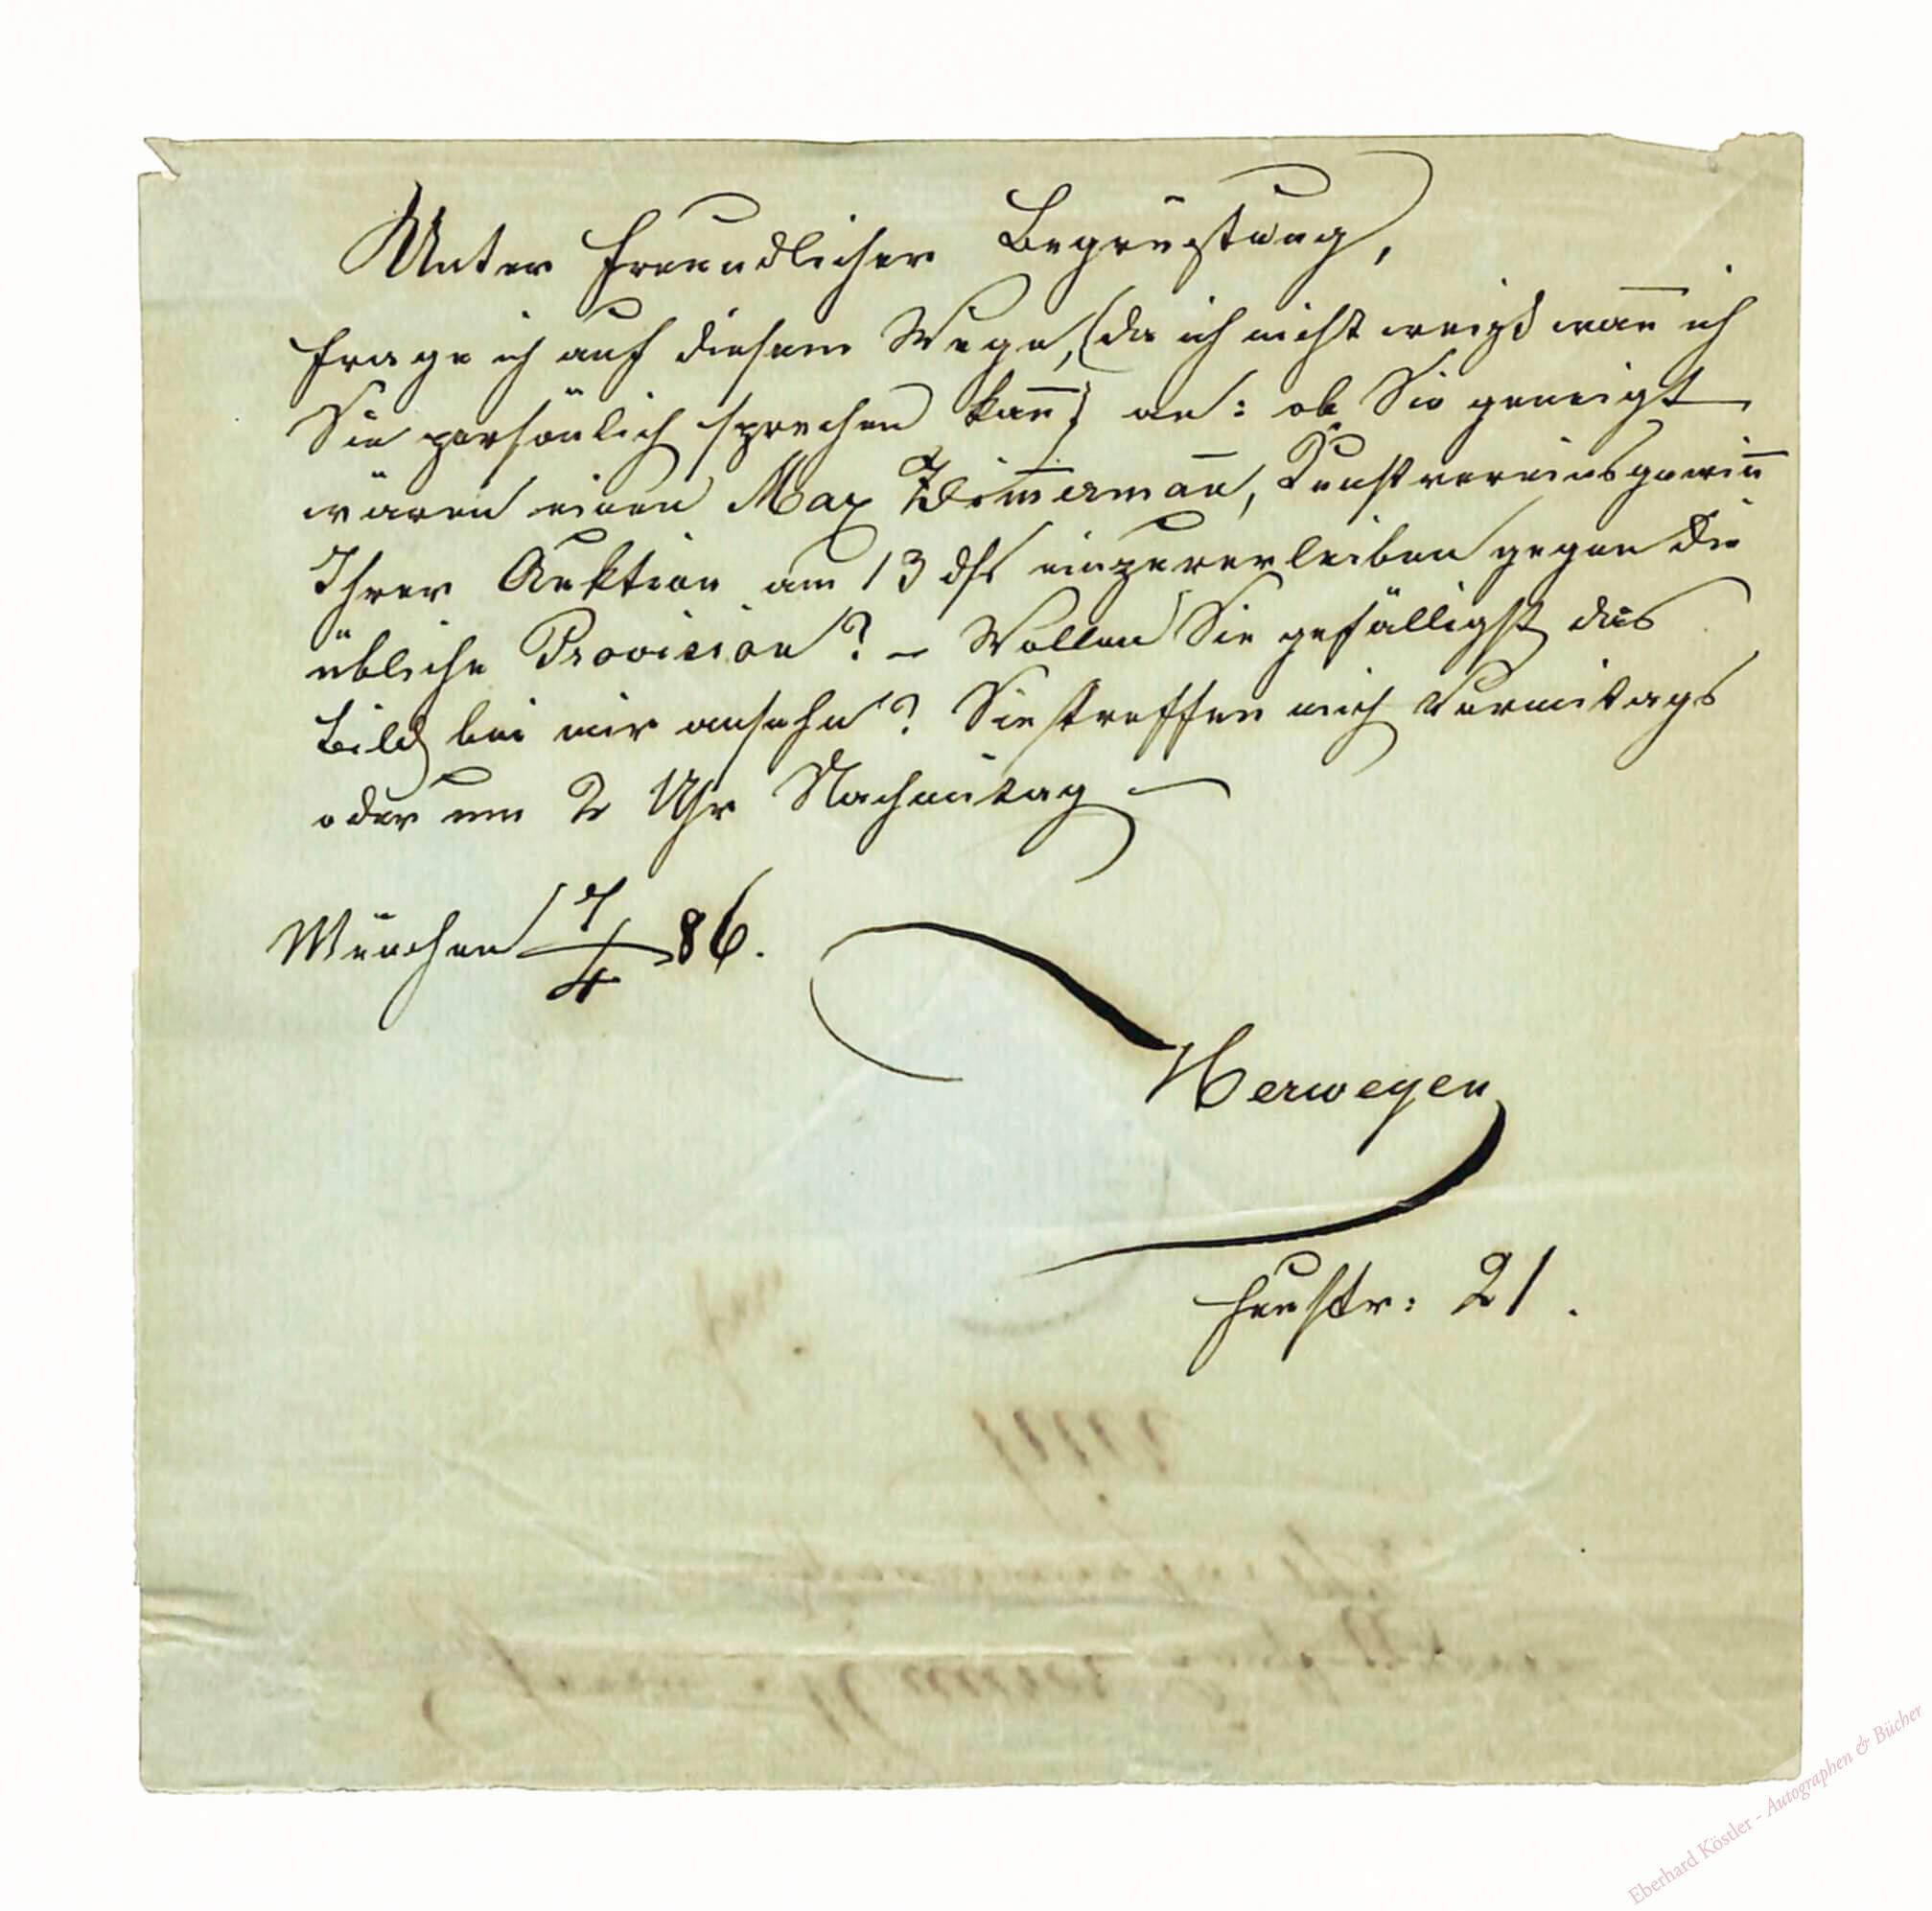 Unter freundlicher Begrüßung,
frage ich auf diesem Wege, (da ich nicht weiß wan̄ ich
Sie persönlich sprechen kan̄) an: ob Sie geneigt
wären einen Max Zim̄erman̄, Kunstvereinsgewin̄
Ihrer Auktion am 13 dſs einzuverleiben gegen die
übliche Provision? – Wollen Sie gefälligst das
Bild bei mir ansehn? Sie treffen mich Vormitags
oder um 2 Uhr Nachmitag –
München 7/4 86.
Herwegen
Heustr: 21.
Eberhard Köstler - Autographen & Bücher